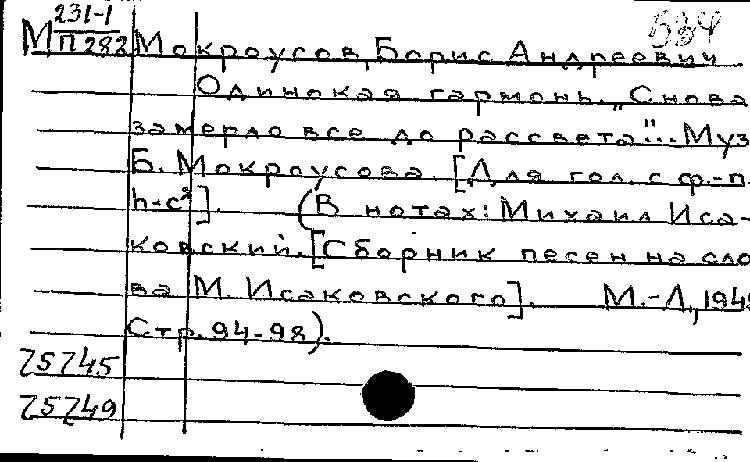 231-1
М П 282 Мокроусов, Борис Андреевич
Одинокая гармонь. "Снова
замерло все до рассвета"... Муз
Б. Мокроусова. [Для гол. с ф.-п.
h-c²]. (В нотах: Михаил Иса-
ковский. [Сборник песен на сло
ва М. Исаковского]. М.-Л., 1949
Стр. 94-98).
75745
75749